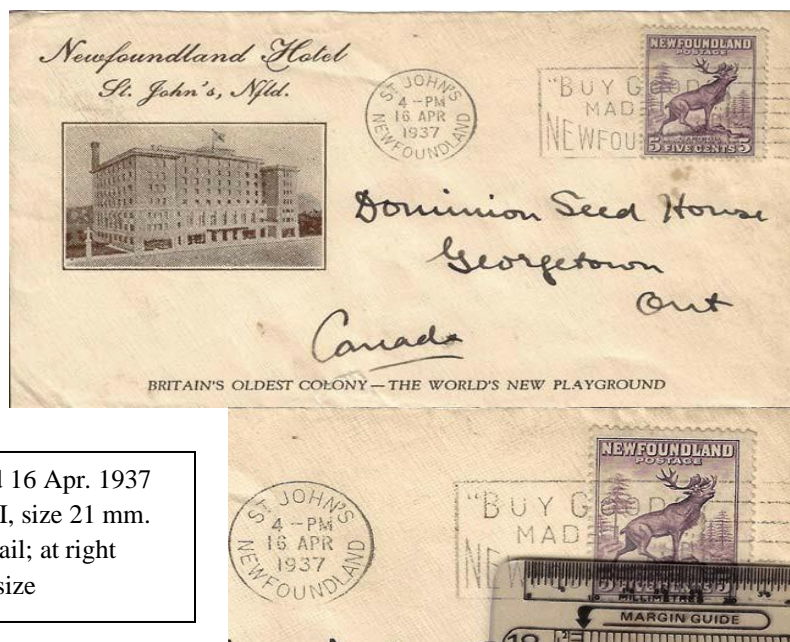 Newfoundland Hotel
St. John's, Nfld.
ST JOHN'S
4-PM
16 APR
1937
NEWFOUNDLAND
"BUY GOOD
MAD
NEWFOU
NEWFOUNDLAND
POSTAGE
5 FIVE CENTS 5
Dominion Seed House
Georgetown
Ont
Canada
BRITAIN'S OLDEST COLONY—THE WORLD'S NEW PLAYGROUND
16 Apr. 1937
I, size 21 mm.
ail; at right
size
ST JOHN'S
4-PM
16 APR
1937
NEWFOUNDLAND
"BUY GOOD
MAD
NEW
NEWFOUNDLAND
POSTAGE
10
MILLIMETRES
MARGIN GUIDE